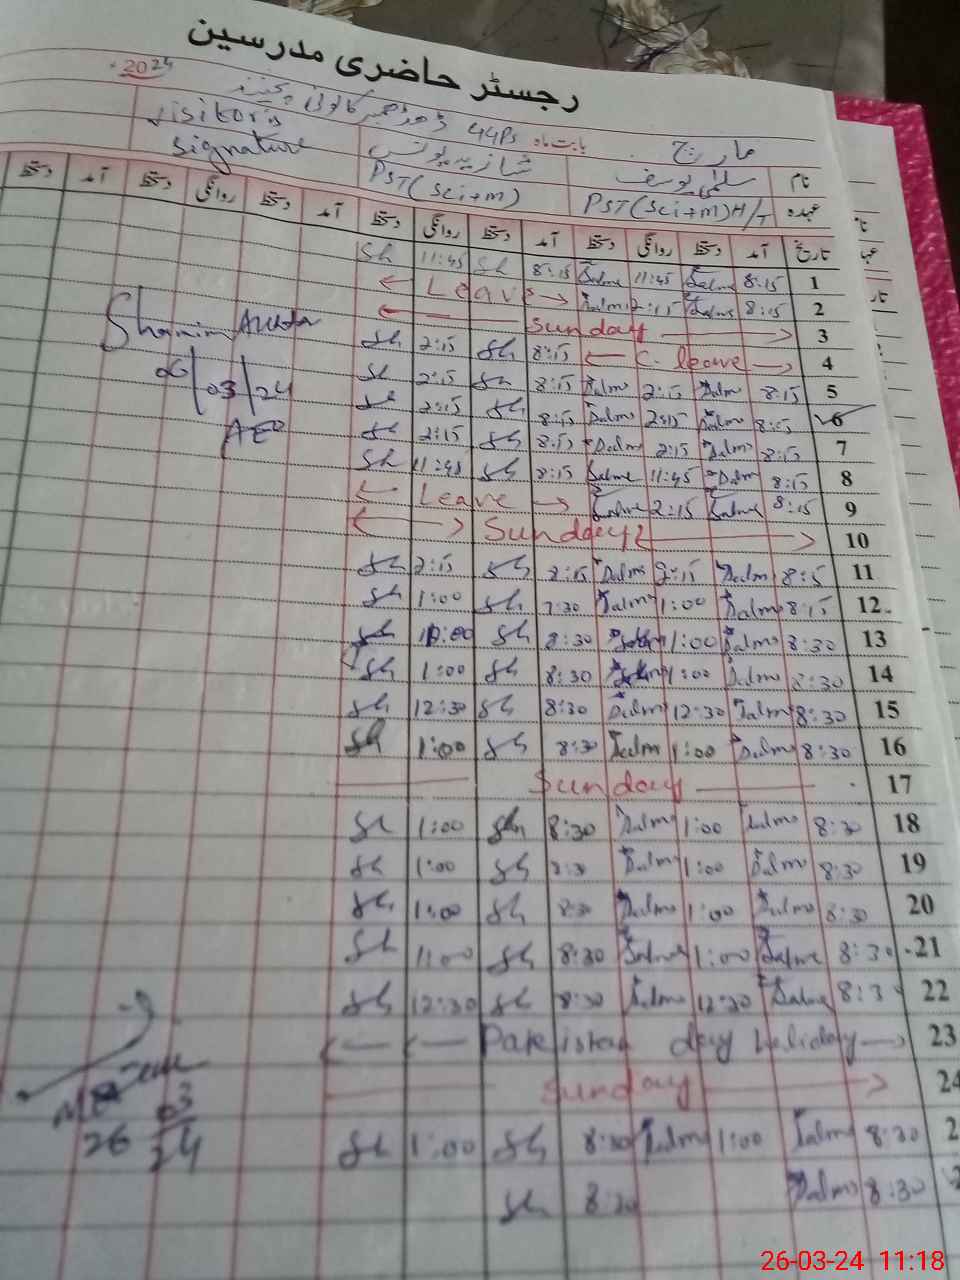 رجسٹر حاضری مدرسین
2024
مارچ بابت ماہ 44Ps
نام سلمیٰ یوسف شازیہ visitor's
عہدہ PST(Sci+m)H/T PST(Sci+m) signature
تاریخ آمد دستخط روانگی دستخط آمد دستخط روانگی دستخط آمد دستخط روانگی دستخط آمد دستخط
1 8:15 Salma 11:45 Salma 8:15 Sh 11:45 Sh
2 8:15 Salma 2:15 Salma Leave
3 Sunday
4 C. leave 8:15 Sh 2:15 Sh
5 8:15 Salma 2:15 Salma 8:15 Sh 2:15 Sh
6 8:15 Salma 2:15 Salma 8:15 Sh 2:15 Sh
7 8:15 Salma 2:15 Salma 8:15 Sh 2:15 Sh
8 8:15 Salma 11:45 Salma 8:15 Sh 11:45 Sh
9 8:15 Salma 2:15 Salma Leave
10 Sunday
11 8:15 Salma 2:15 Salma 8:15 Sh 2:15 Sh
12 8:15 Salma 1:00 Salma 7:30 Sh 1:00 Sh
13 8:30 Salma 1:00 Salma 8:30 Sh Sh
14 8:30 Salma 1:00 Salma 8:30 Sh 1:00 Sh
15 8:30 Salma 12:30 Salma 8:30 Sh 12:30 Sh
16 8:30 Salma 1:00 Salma 8:30 Sh 1:00 Sh
17 Sunday
18 8:30 Salma 1:00 Salma 8:30 Sh 1:00 Sh
19 8:30 Salma 1:00 Salma 8:30 Sh 1:00 Sh
20 8:30 Salma 1:00 Salma 8:30 Sh 1:00 Sh
21 8:30 Salma 1:00 Salma 8:30 Sh 11:00 Sh
22 8:30 Salma 12:30 Salma 8:30 Sh 12:30 Sh
23 Pakistan day Holiday
24 Sunday
2 8:30 Salma 1:00 Salma 8:30 Sh 1:00 Sh
2 8:30 Salma 8:30 Sh
Shamim Akhtar
06/03/24
AEO
26 03
24
26-03-24 11:18